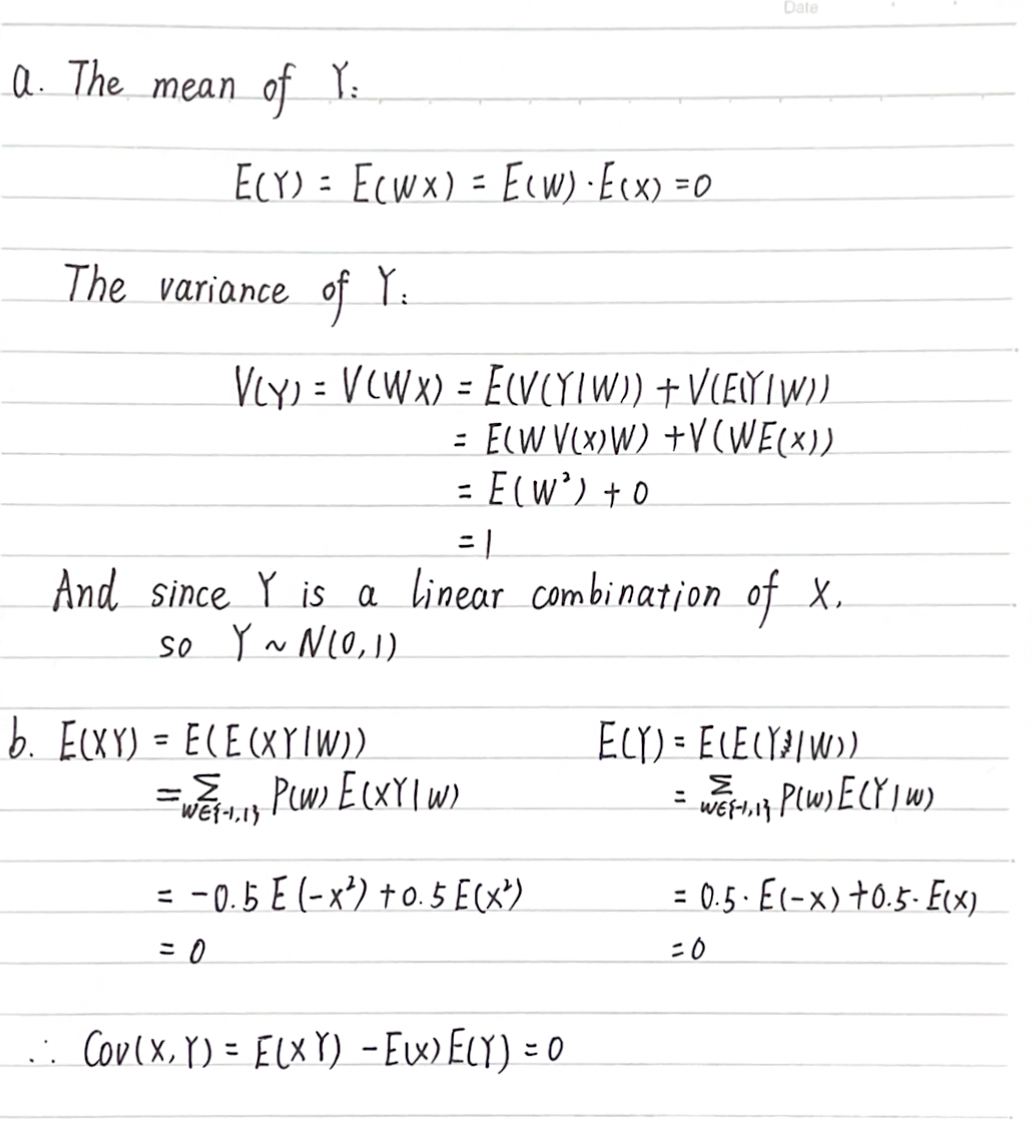 Date
a. The mean of Y:
E(Y) = E(WX) = E(W)·E(X) = 0
The variance of Y:
V(Y) = V(WX) = E(V(Y|W)) + V(E(Y|W))
= E(W V(X)W) + V(WE(X))
= E(W²) + 0
= 1
And since Y is a linear combination of X,
so Y ~ N(0,1)
b. E(XY) = E(E(XY|W))
= Σ_{W∈{-1,1}} P(w) E(XY|w)
= -0.5 E(-X²) + 0.5 E(X²)
= 0
E(Y) = E(E(Y|W))
= Σ_{W∈{-1,1}} P(w) E(Y|w)
= 0.5· E(-X) + 0.5· E(X)
= 0
∴ Cov(X,Y) = E(XY) - E(X)E(Y) = 0